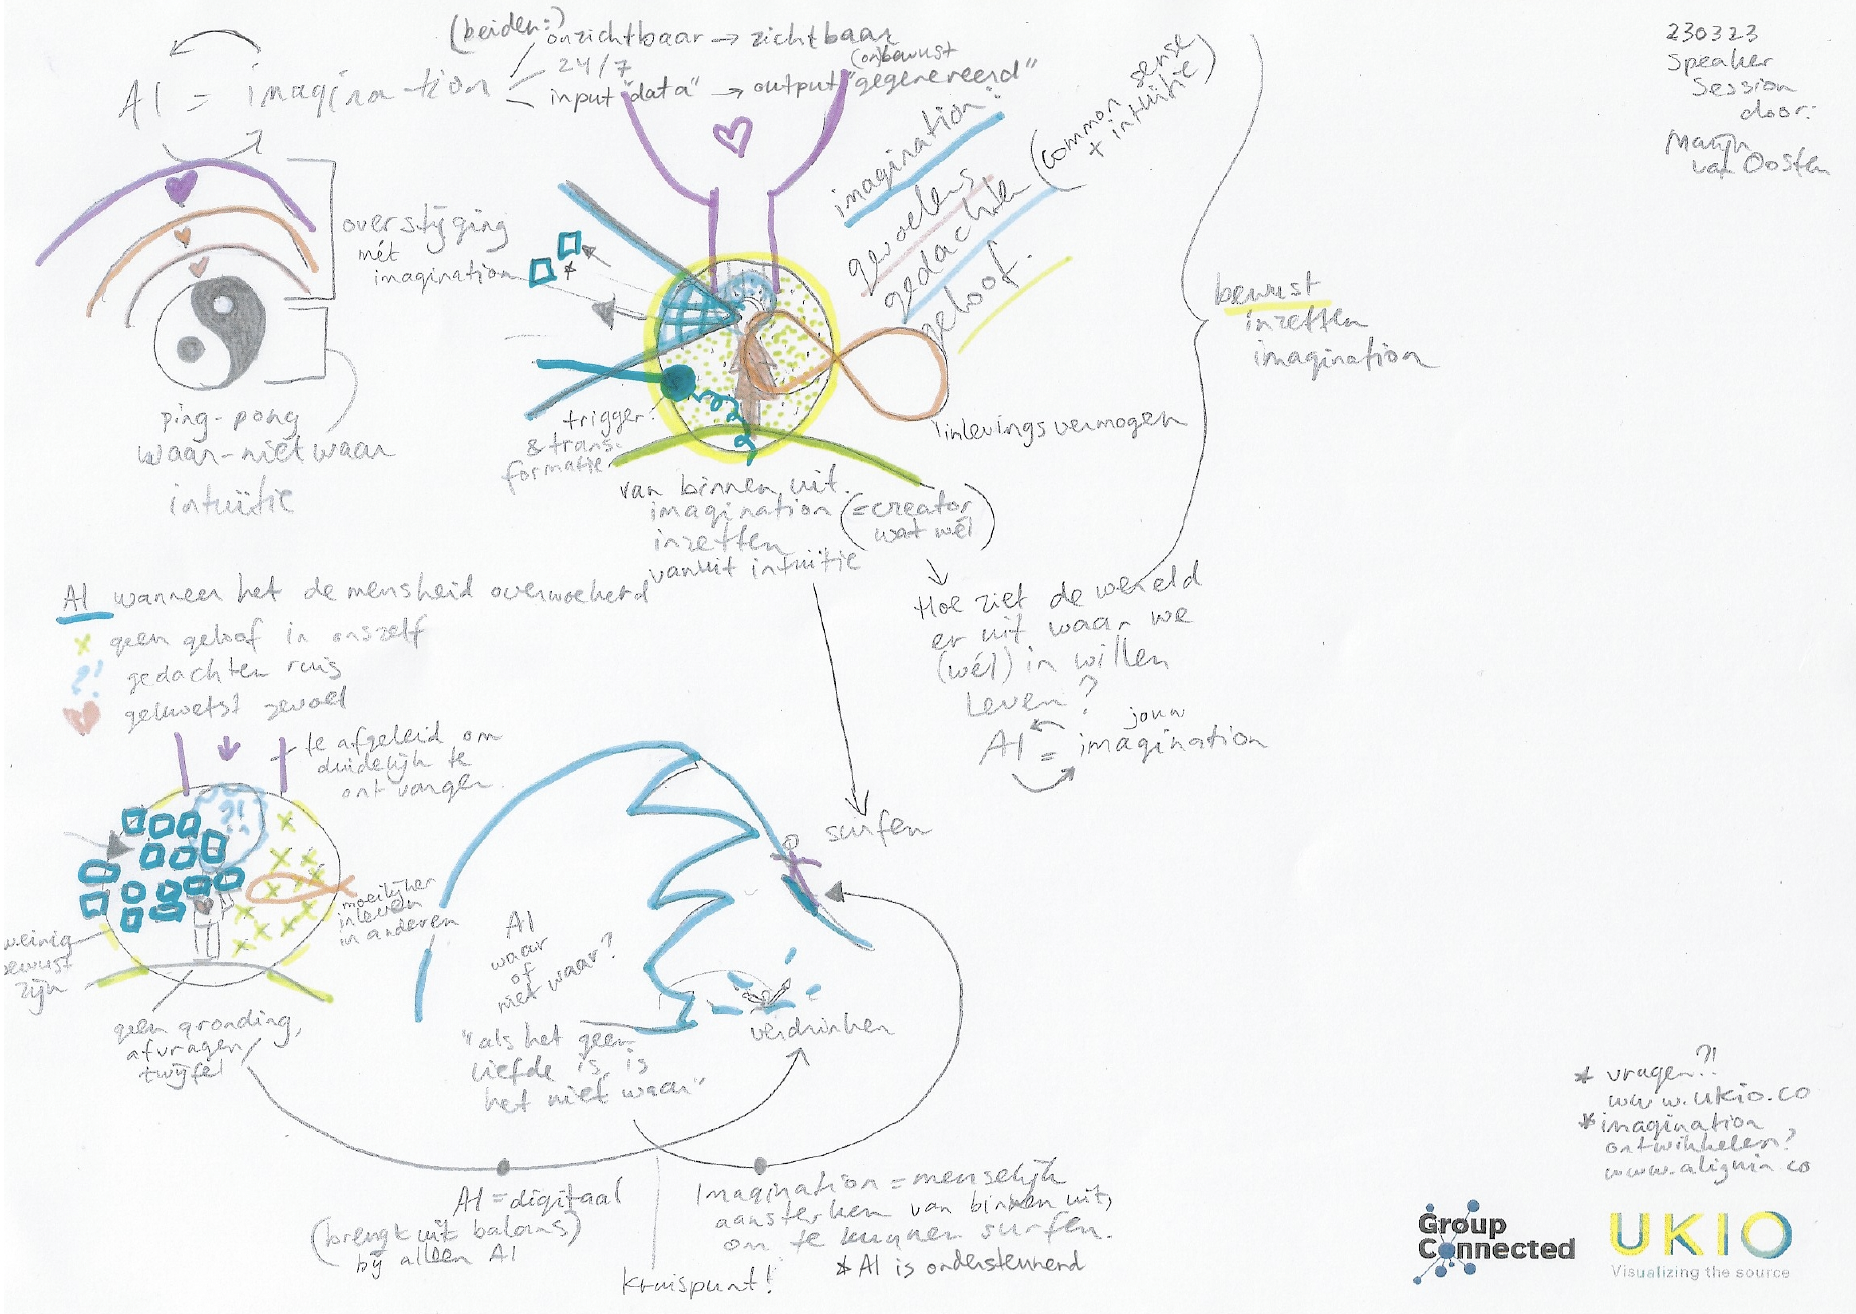 (beiden:)
onzichtbaar → zichtbaar
24/7
(on)bewust
input "data" → output "gegenereerd"
AI = imagination
230323
Speaker
Session
door:
Marijn
van Oosten
imagination:
gevoelens
gedachten
(common sense
+ intuïtie)
geloof.
overstijging
mét
imagination
*
bewust
inzetten
imagination
ping-pong
waar-niet waar
intuïtie
trigger
& trans-
formatie
inlevingsvermogen
van binnen uit
imagination
inzetten
vanuit intuïtie
(=creator
wat wél)
AI wanneer het de mensheid overwoekerd
x geen geloof in onszelf
?! gedachten ruis
gekwetst gevoel
Hoe ziet de wereld
er uit waar we
(wél) in willen
leven?
jouw
AI = imagination
te afgeleid om
duidelijk te
ontvangen
?!
moeilijker
inleven
in anderen
weinig
bewust
zijn
geen gronding,
afvragen
twijfel
surfen
AI
waar
of
niet waar?
verdrinken
"als het geen
liefde is, is
het niet waar"
AI = digitaal
(brengt uit balans)
bij alleen AI
kruispunt!
Imagination = menselijk
aansterken van binnen uit,
om te kunnen surfen.
* AI is ondersteunend
* vragen?!
www.ukio.co
* imagination
ontwikkelen?
www.alignin.co
Group
Connected
UKIO
Visualizing the source